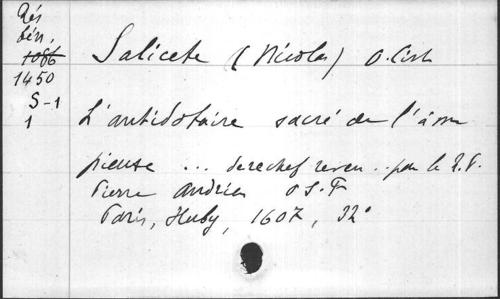 Rés
bén.
1086
1450
S-1
1
Salicete (Nicolas) O. Cist
L'antidotaire sacré de l'âme
pieuse ... derechef reveu .. par le R.P.
Pierre Andrieu O S. F
Paris, Huby, 1607, 32°